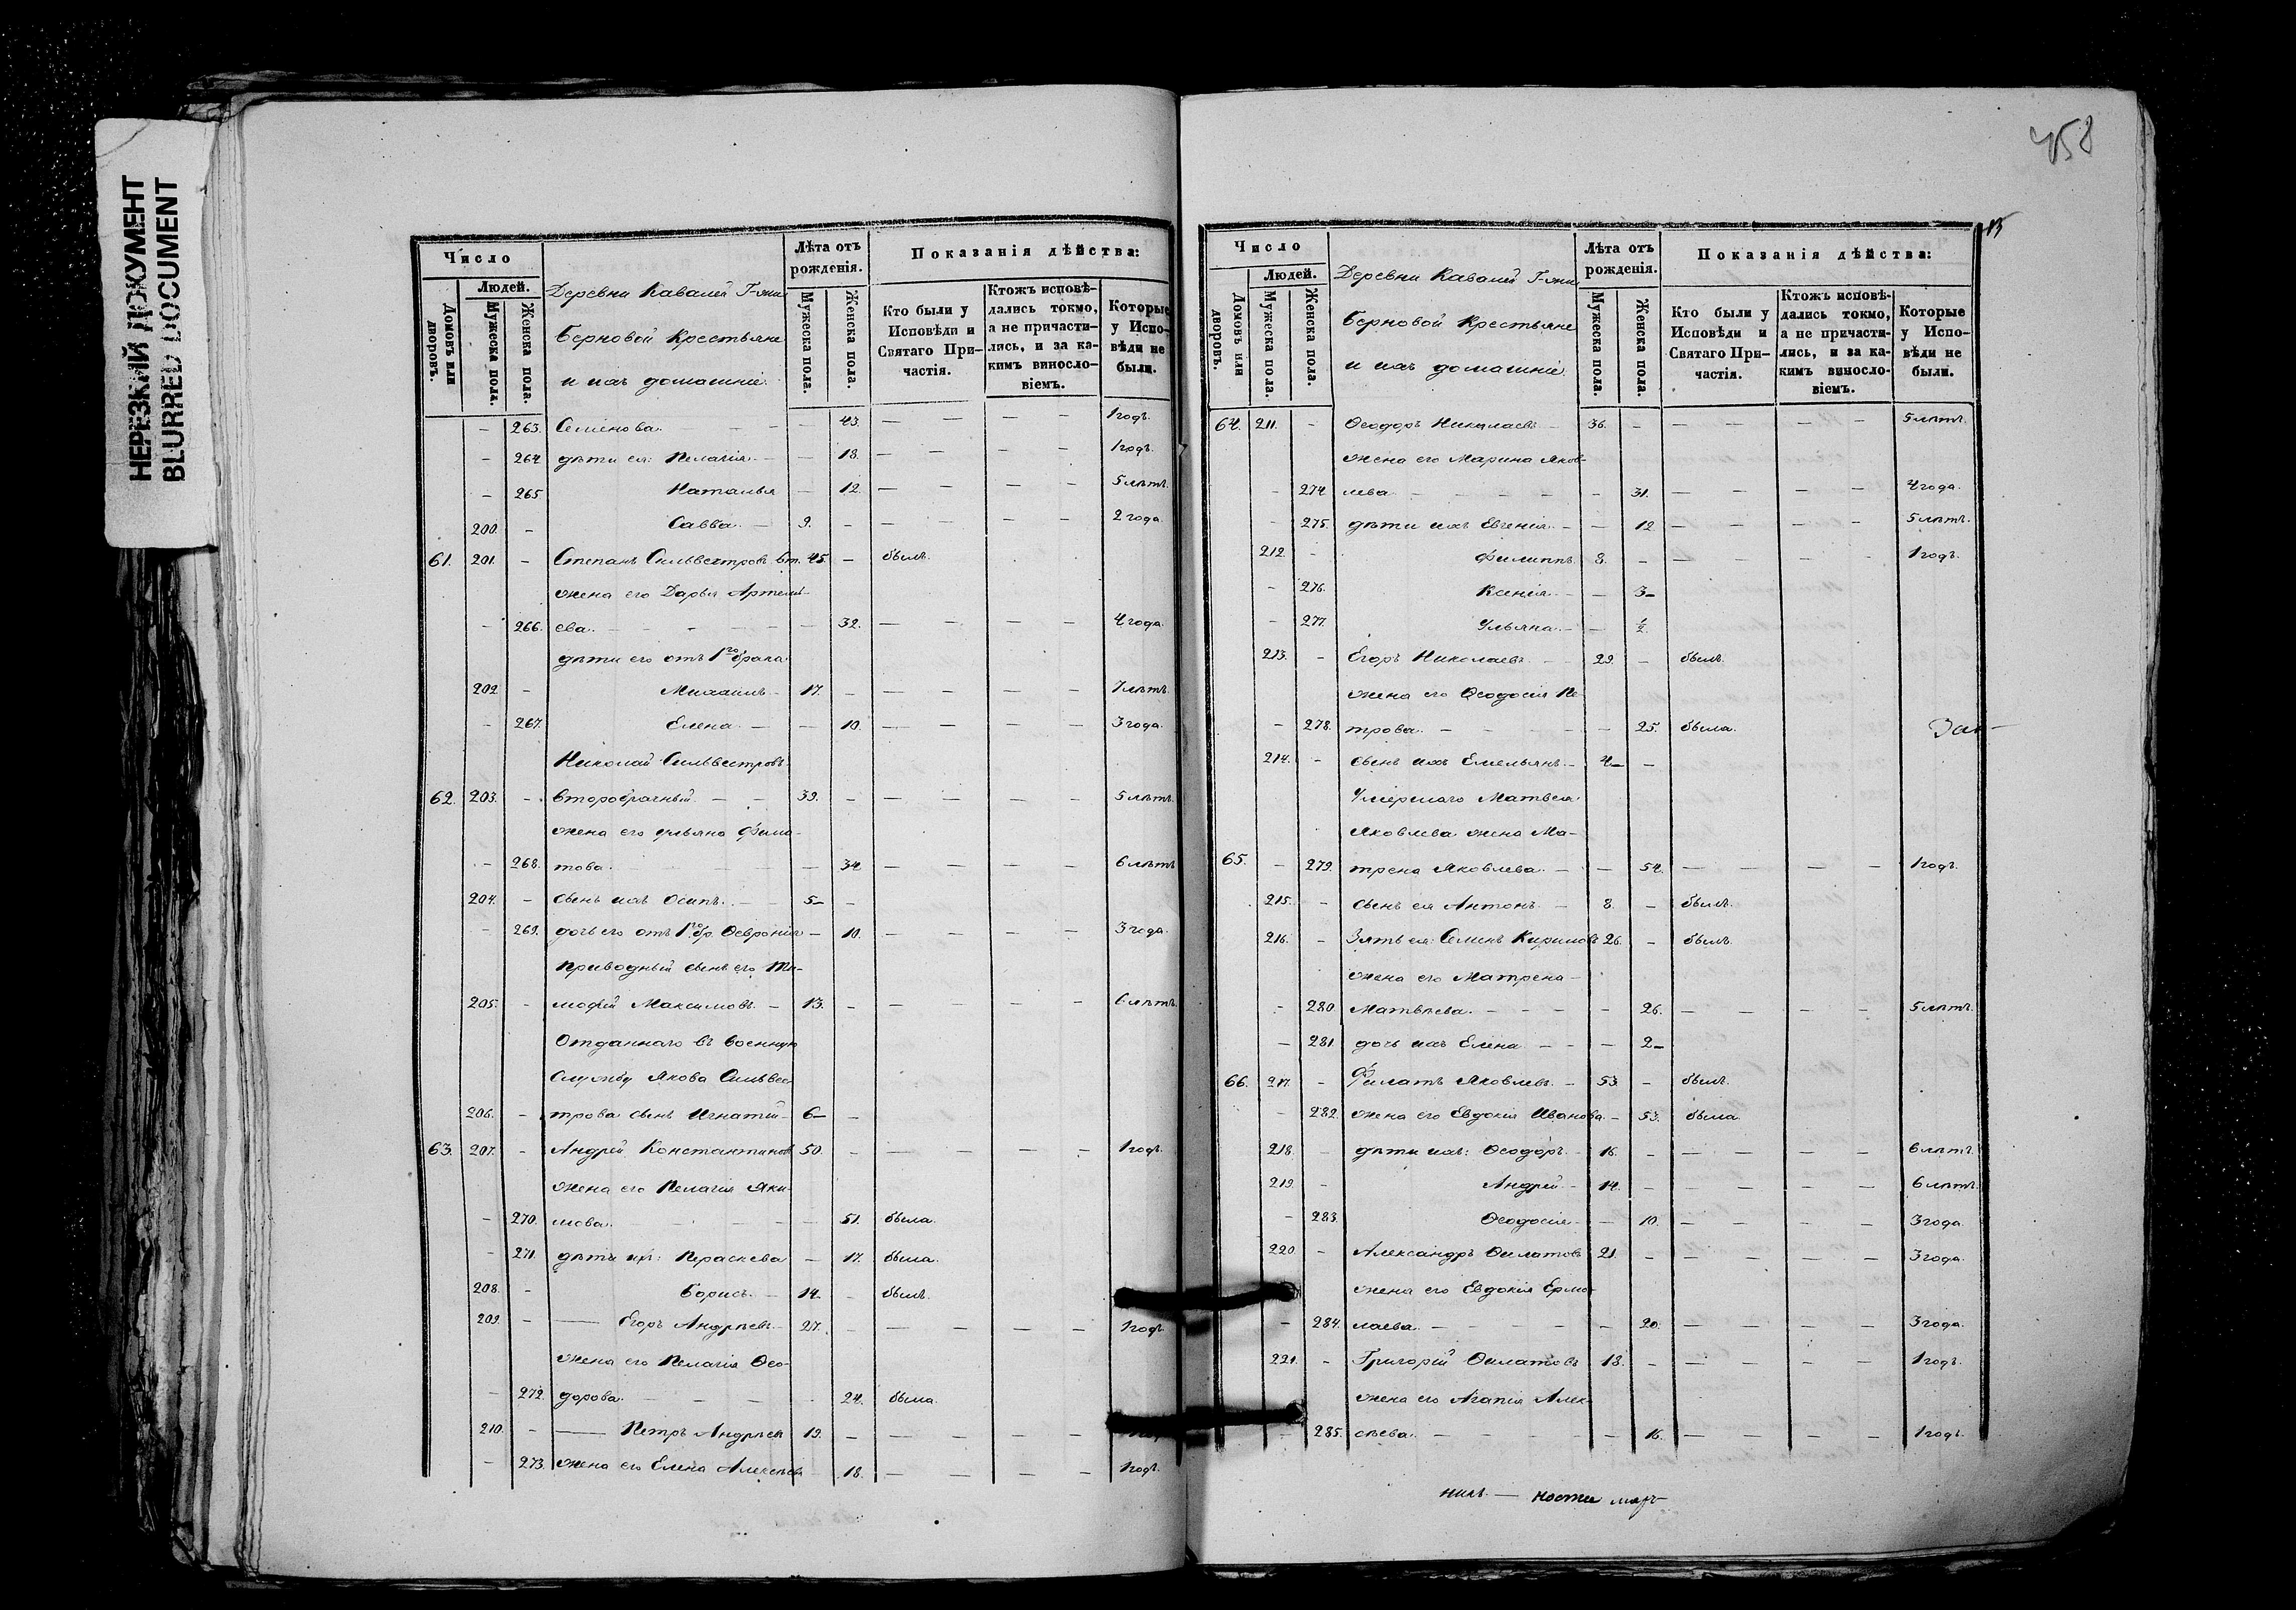 НЕРЕЗКИЙ ДОКУМЕНТ
BLURRED DOCUMENT
Число
Людей.
Домовъ или дворовъ.
Мужеска пола.
Женска пола.
Деревни Кавалей Г-жи
Берновой крестьяне
и ихъ домашніе.
Лѣта отъ рожденія.
Мужеска пола.
Женска пола.
Показанія дѣйства:
Кто были у Исповѣди и Святаго При-частія.
Ктожъ исповѣ-дались токмо, а не причасти-лись, и за ка-кимъ винословіемъ.
Которые у Испо-вѣди не были.
– 263. Семенова. – – – – 43. – – – – 1 годъ.
– 264 дѣти ея: Пелагія. – – 18. – – – – 1 годъ.
– 265 Наталья – 12. – – – – 5 лѣтъ.
200. – Савва. – 9. – – – – – 2 года
61. 201. – Степанъ Сильвестровъ вт. 45. – былъ.
жена его Дарья Артемь-
– 266. ева. – – – – – 32. – – – – 4 года.
дѣти его отъ 1го брака
202. – Михаилъ – 17. – – – – – 7 лѣтъ.
– 267. Елена. – – 10. – – – – 3 года.
Николай Сильвестровъ
62. 203. – второбрачный – – 39. – – – – – 5 лѣтъ.
жена его Ульяна Фила-
– 268. това. – – 34 – – – – 6 лѣтъ
204. – сынъ ихъ Осипъ. – – 5 – –
– 269. дочь его отъ 1го бр. Ѳевронія – 10. – – – – 3 года.
Приводный сынъ его Ти-
205. – мофей Максимовъ. – 13. – – – – – 6 лѣтъ.
Отданнаго въ военную
службу Якова Сильвес-
206. – трова сынъ Игнатій – 6 – –
63. 207. – Андрей Константиновъ 50. – – – – – 1 годъ.
жена его Пелагія Яки-
– 270. мова. – – – 51. была.
– 271. дѣти ихъ: Параскева – 17. была.
208. – Борисъ. – 14. – былъ.
209. – — Егоръ Андреевъ. – 27. – – – – – 1 годъ
жена его Пелагія Ѳео-
– 272. дорова. – – – – 24. была
210. – — Петръ Андреевъ 19. – – – – –
– 273. жена его Елена Алексѣева 18. – – – – 1 годъ.
458
15
Число
Людей.
Домовъ или дворовъ.
Мужеска пола.
Женска пола.
Деревни Кавалей Г-жи
Берновой крестьяне
и ихъ домашніе.
Лѣта отъ рожденія.
Мужеска пола.
Женска пола.
Показанія дѣйства:
Кто были у Исповѣди и Святаго При-частія.
Ктожъ исповѣ-дались токмо, а не причасти-лись, и за ка-кимъ винословіемъ.
Которые у Испо-вѣди не были.
64. 211. – Ѳеодоръ Николаевъ – 36. – – – – – 5 лѣтъ.
жена его Марина Яков-
– 274 лева – – – – – 31. – – – – 4 года.
– 275. дѣти ихъ Евгенія. – – 12 – – – – 5 лѣтъ.
212. – Филиппъ 8. – – – – – 1 годъ.
– 276. Ксенія. – – 3 –
– 277. Ульяна. – – ½.
213. – Егоръ Николаевъ. – – 29. – былъ.
жена его Ѳеодосія Пе-
– 278. трова. – – – – – 25. была.
214. – сынъ ихъ Емельянъ. – 4 – –
Умершаго Матвея
Яковлева жена Ма-
65. – 279. трена Яковлева. – – 54. – – – – 1 годъ.
215. – сынъ ея Антонъ. – 8. – былъ.
216. – Зять ея: Семенъ Кириловъ 26. – былъ.
жена его Матрена –
– 280. Матвѣева. – – – – 26. – – – – 5 лѣтъ.
– 281. дочь ихъ Елена – – – 2 –
66. 217. – Филатъ Яковлевъ. – 53. – былъ.
– 282. жена его Евдокія Иванова. – 53. была.
218 – дѣти ихъ: Ѳеодоръ. – 16. – – – – – 6 лѣтъ.
219. – Андрей – 14. – – – – – 6 лѣтъ.
– 283. Ѳеодосія – – 10. – – – – 3 года.
220 – Александръ Филатовъ 21. – – – – – 3 года.
жена его Евдокія Ермо-
– 284. лаева. – – – – – 20. – – – – 3 года.
221. – Григорій Филатовъ 18. – – – – – 1 годъ.
жена его Агапія Алек-
– 285. сѣева. – – – – – 16. – – – – 1 годъ.